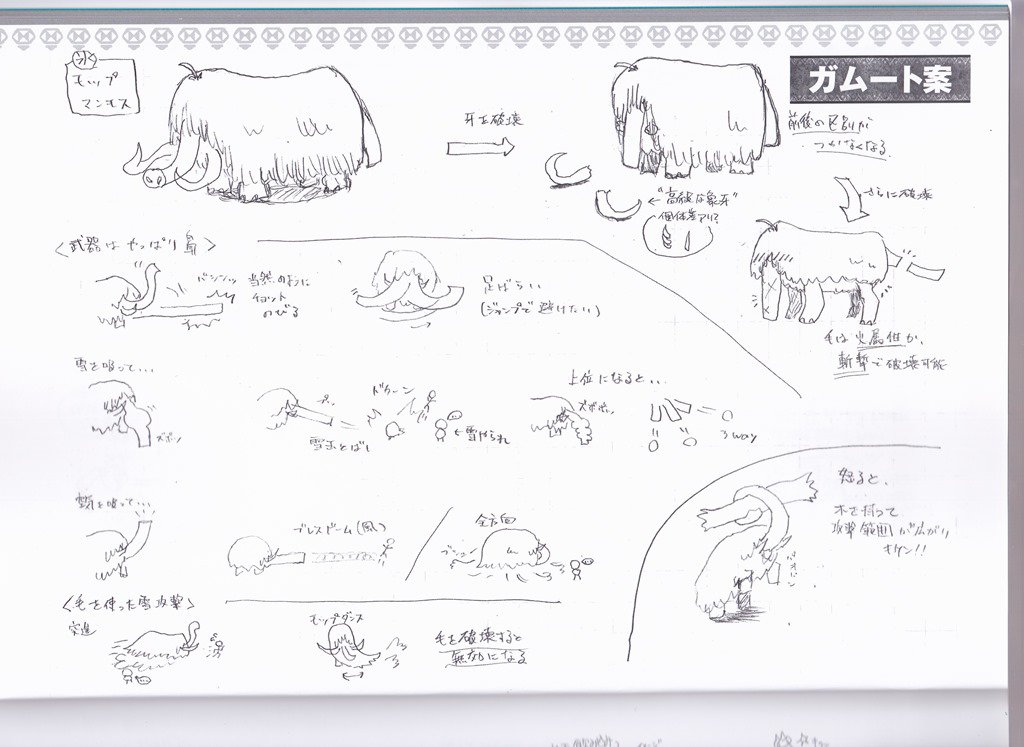 氷
モップ
マンモス
牙を破壊
ガムート案
前後の区別が
つかなくなる.
さらに破壊
"高級な象牙"
個体差アリ?
毛は火属性か、
斬撃で破壊可能
〈武器はやっぱり鼻〉
バシンッ
当然のように
チョット
のびる
足ばらい
(ジャンプで避けたい)
雪を吸って...
ズボッ
雪玉とばし
ドカーン
←雪やられ
上位になると...
ズボボッ
3way
を吸って...
ブレスドーム(風)
全方向
怒ると、
木を持って
攻撃範囲が広がり
キケン!!
〈毛を使った雪攻撃〉
突進
モップダンス
毛を破壊すると
無効になる